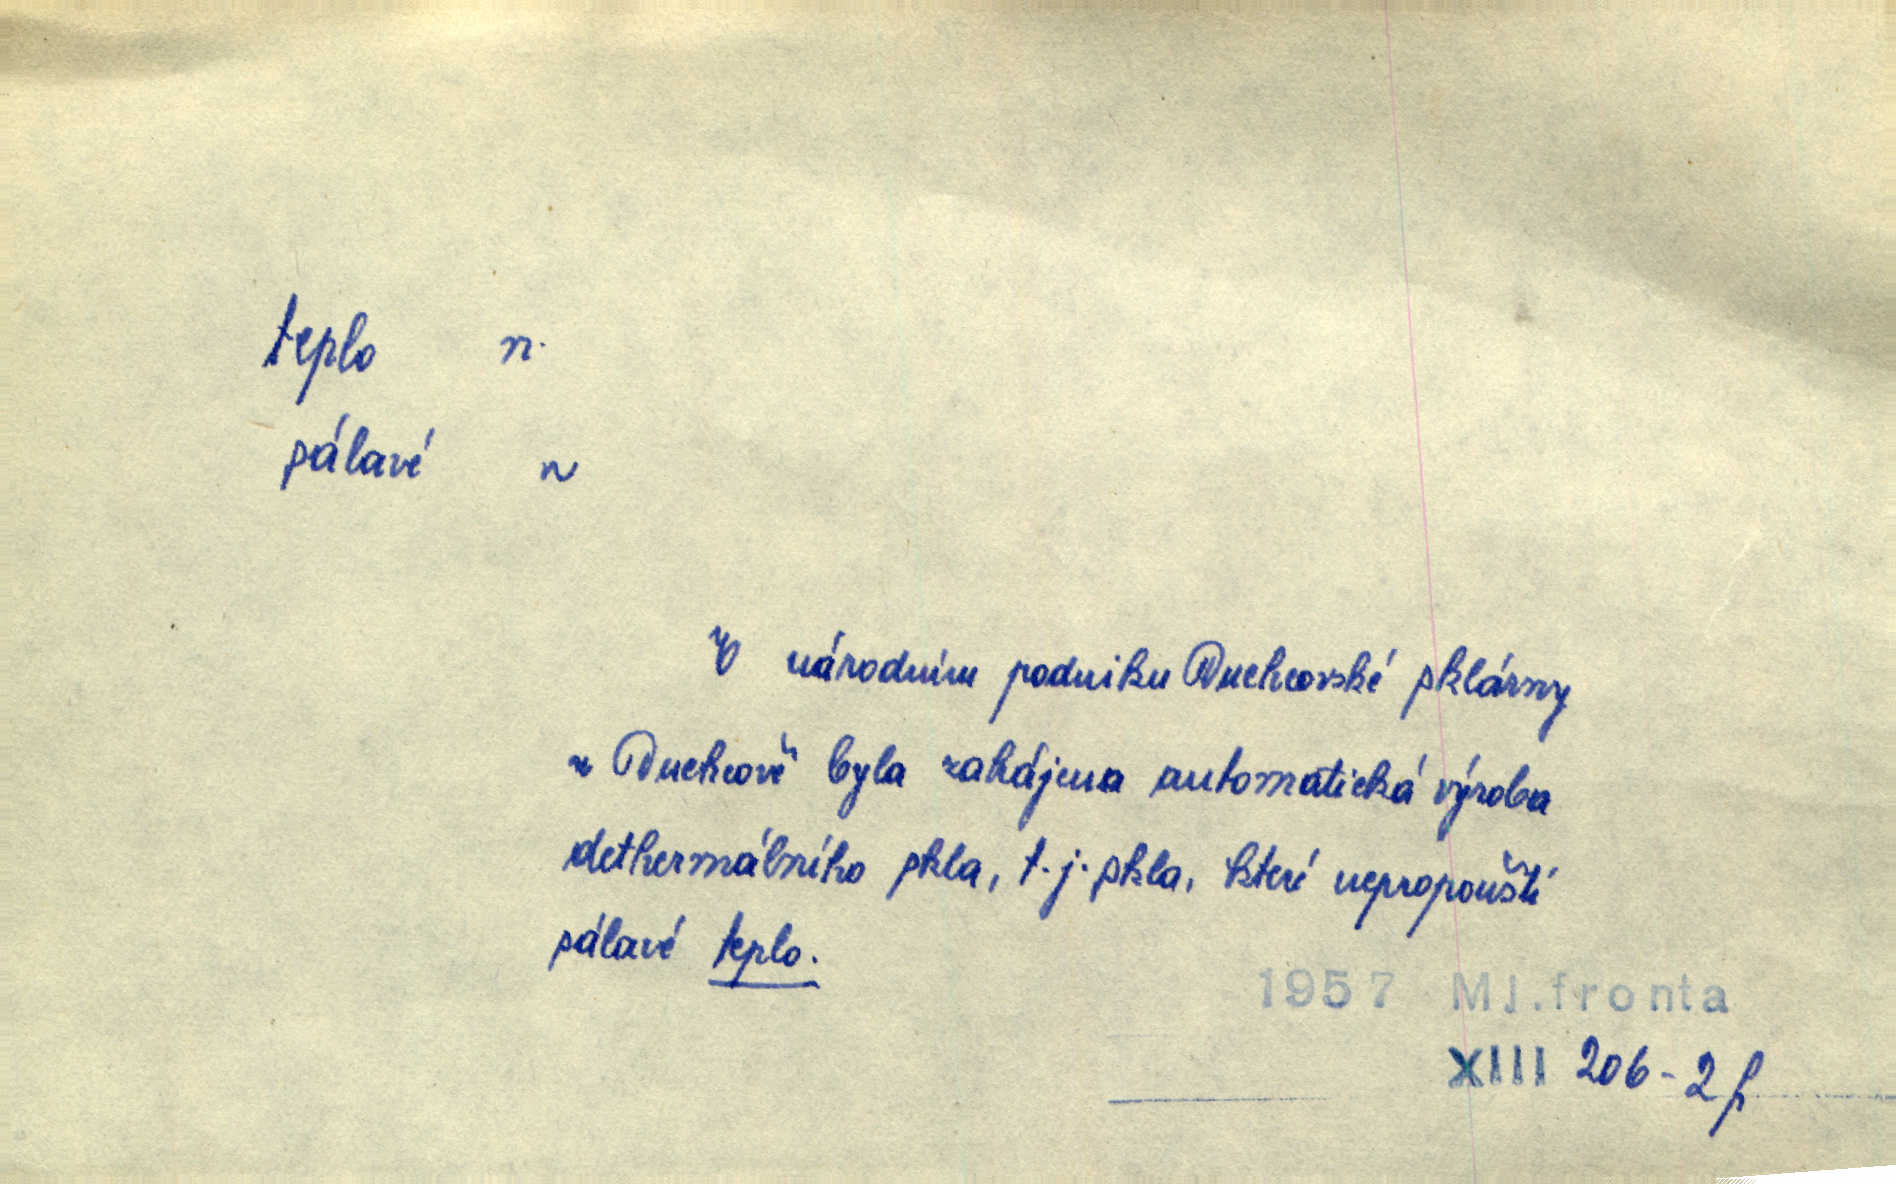 teplo n.
sálavé n
V národním podniku Duchcovské sklárny
v Duchcově byla zahájena automatická výroba
dethermálního skla, t.j. skla, které nepropouští
sálavé teplo.
1957 Ml.fronta
XIII 206-2